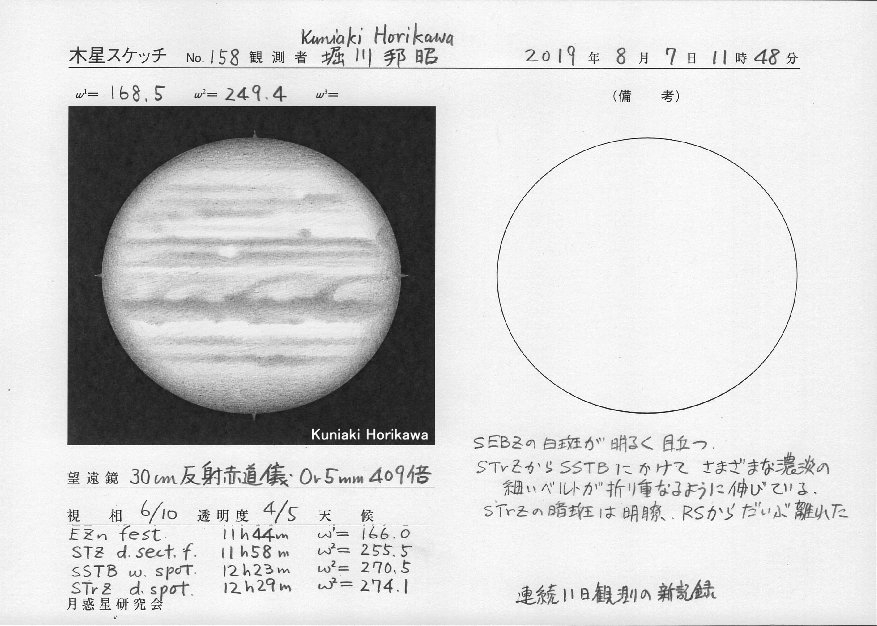 Kuniaki Horikawa
木星スケッチ No. 158 観測者 堀川邦昭 2019年8月7日11時48分
ω¹= 168.5 ω²= 249.4 ω³=
(備 考)
Kuniaki Horikawa
SEBZの白斑が明るく目立つ.
STrZからSSTBにかけてさまざまな濃淡の
細いベルトが折り重なるように伸びている.
STrZの暗斑は明瞭、RSからだいぶ離れた
望遠鏡 30cm反射赤道儀. Or5mm 409倍
視 相 6/10 透明度 4/5 天 候
EZn fest. 11h44m ω¹= 166.0
STZ d.sect.f. 11h58m ω²= 255.5
SSTB w. spot. 12h23m ω²= 270.5
STrZ d. spot. 12h29m ω²= 274.1
連続11日観測の新記録
月惑星研究会